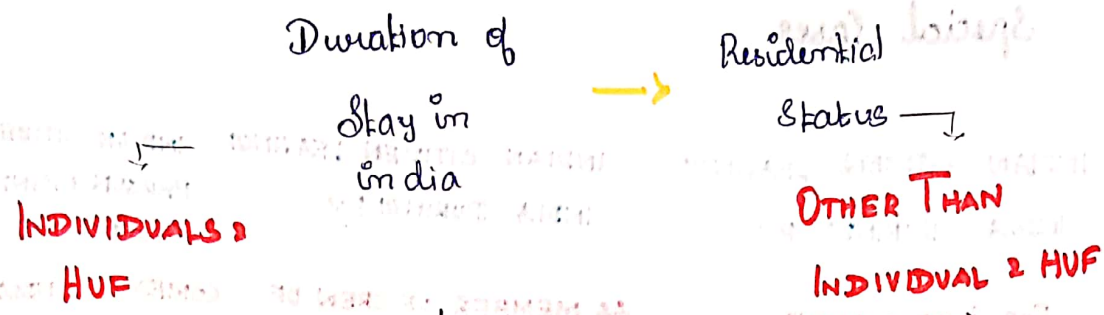 Duration of
Stay in
india
→
Residential
Status
INDIVIDUALS &
HUF
OTHER THAN
INDIVIDUAL & HUF